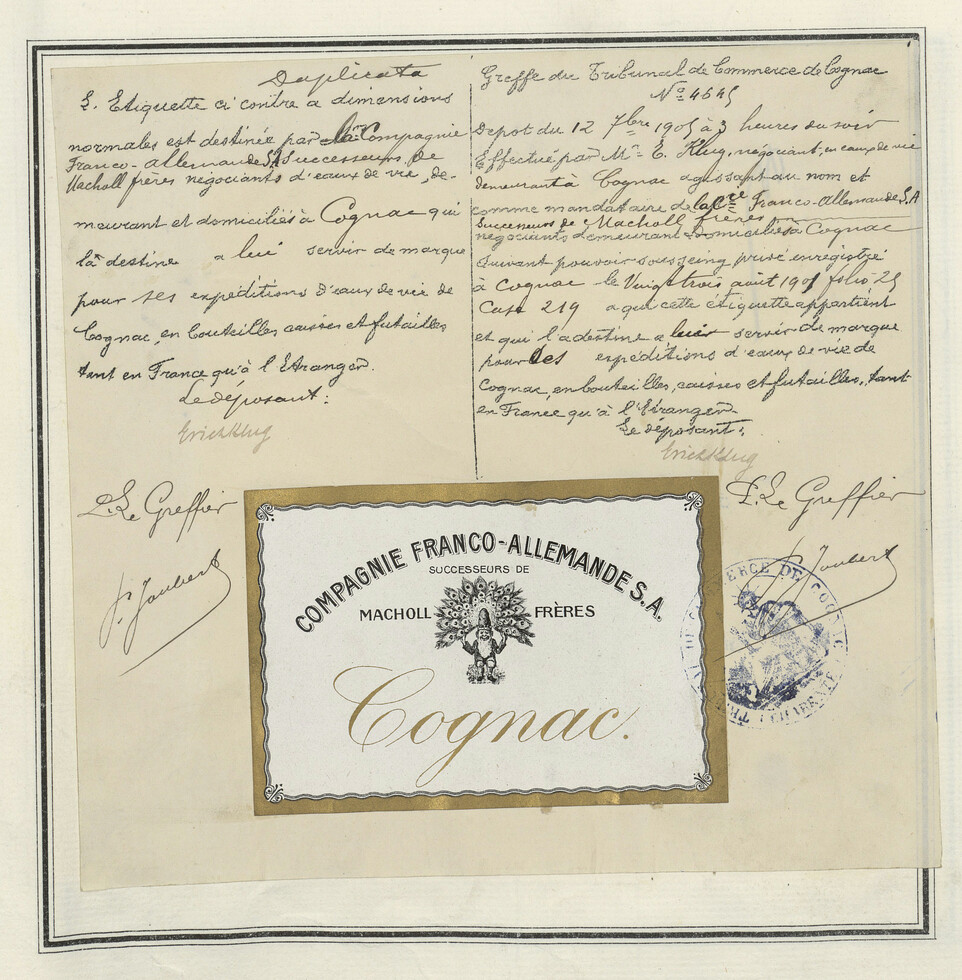 Duplicata
L. Etiquette ci contre a dimensions
normales est destinée par la Cie Compagnie
Franco-allemande S.A Successeurs de
Macholl frères négociants d'eaux de vie, de-
meurant et domiciliés à Cognac qui
la destine a lui servir de marque
pour ses expéditions d'eaux de vie de
Cognac, en bouteilles caisses et futailles
tant en France qu'à l'Etranger.
Le déposant:
Erich Klug
P. Le Greffier
P. Joubert
Greffe du Tribunal de Commerce de Cognac
No 4645
Depot du 12 7bre 1905 à 3 heures du soir
Effectué par Mr E. Klug, négociant, en eaux de vie
demeurant à Cognac agissant au nom et
comme mandataire de la Cie Franco-Allemande S.A
Successeurs de Macholl frères
négociants demeurant & domiciliés à Cognac
suivant pouvoir sous seing privé enregistré
à Cognac le Vingt trois août folio 25
Case 219 a qui cette étiquette appartient
et qui l'a destine a leur servir de marque
pour les expéditions d'eaux de vie de
Cognac, en bouteilles, caisses et futailles, tant
en France qu'à l'Etranger
Le déposant:
Erich Klug
P. Le Greffier
P. Joubert
COMPAGNIE FRANCO-ALLEMANDE S.A.
SUCCESSEURS DE
MACHOLL FRÈRES
Cognac.
COMMERCE DE COGNAC
CHARENTE